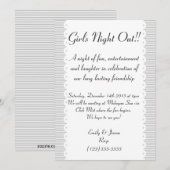 Girls Night Out!!
A night of fun, entertainment
and laughter in celebration of
our long lasting friendship
Saturday, December 14th 2013 at 7pm
We will be meeting at
Club Mist when the fun begins
We hope to see you!
Emily & Jenna
Rsvp
(123)555-5555